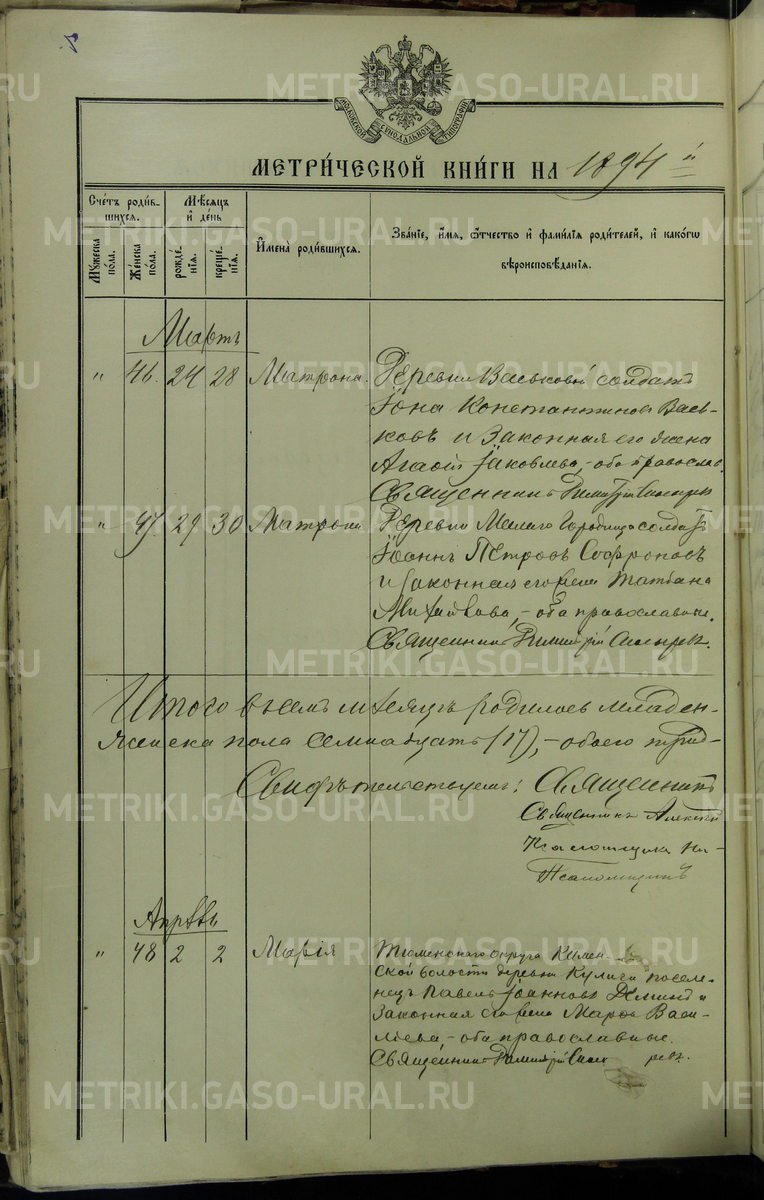 МОСКОВСКОЙ СѴНОДАЛЬНОЙ ТИПОГРАФІИ
МЕТРИ́ЧЕСКОЙ КНИ́ГИ НА 1894 й
Сче́тъ роди́вшихся.
Мѣ́сяцъ и҆ де́нь
Мꙋ́жеска по́ла.
Же́нска по́ла.
рожде́нїѧ.
креще́нїѧ.
И҆мена̀ роди́вшихсѧ.
Зва́нїе, и҆́мѧ, ѻ҆́тчество и҆ фами́лїѧ роди́телей, и҆ како́гѡ
вѣроисповѣ́данїѧ.
Мартъ
" 46. 24 28 Матрона. Деревни Васьковой солдатъ
Іона Константиновъ Вась-
ковъ и законная его жена
Агафія Іаковлева, оба православ.
Священникъ Димитрій
" 47. 29 30 Матрона Деревни Малаго Городища солдатъ
Іоаннъ Петровъ Софроновъ
и законная его жена Татіана
Михайлова, - оба православные.
Священникъ Димитрій
Итого в семъ мѣсяцѣ родилось младен-
женска пола семнадцать (17), - обоего трид-
Свидѣтельствуемъ: Священникъ
Священникъ Алексій
Псаломщикъ
Апрѣль
" 48 2 2 Марія Тюменскаго округа
ской волости деревни Кулиги поселе-
нецъ Павелъ Іоанновъ и
законная его жена Марѳа Васи-
льева - оба православные.
Священникъ Димитрій
METRIKI.GASO-URAL.RU